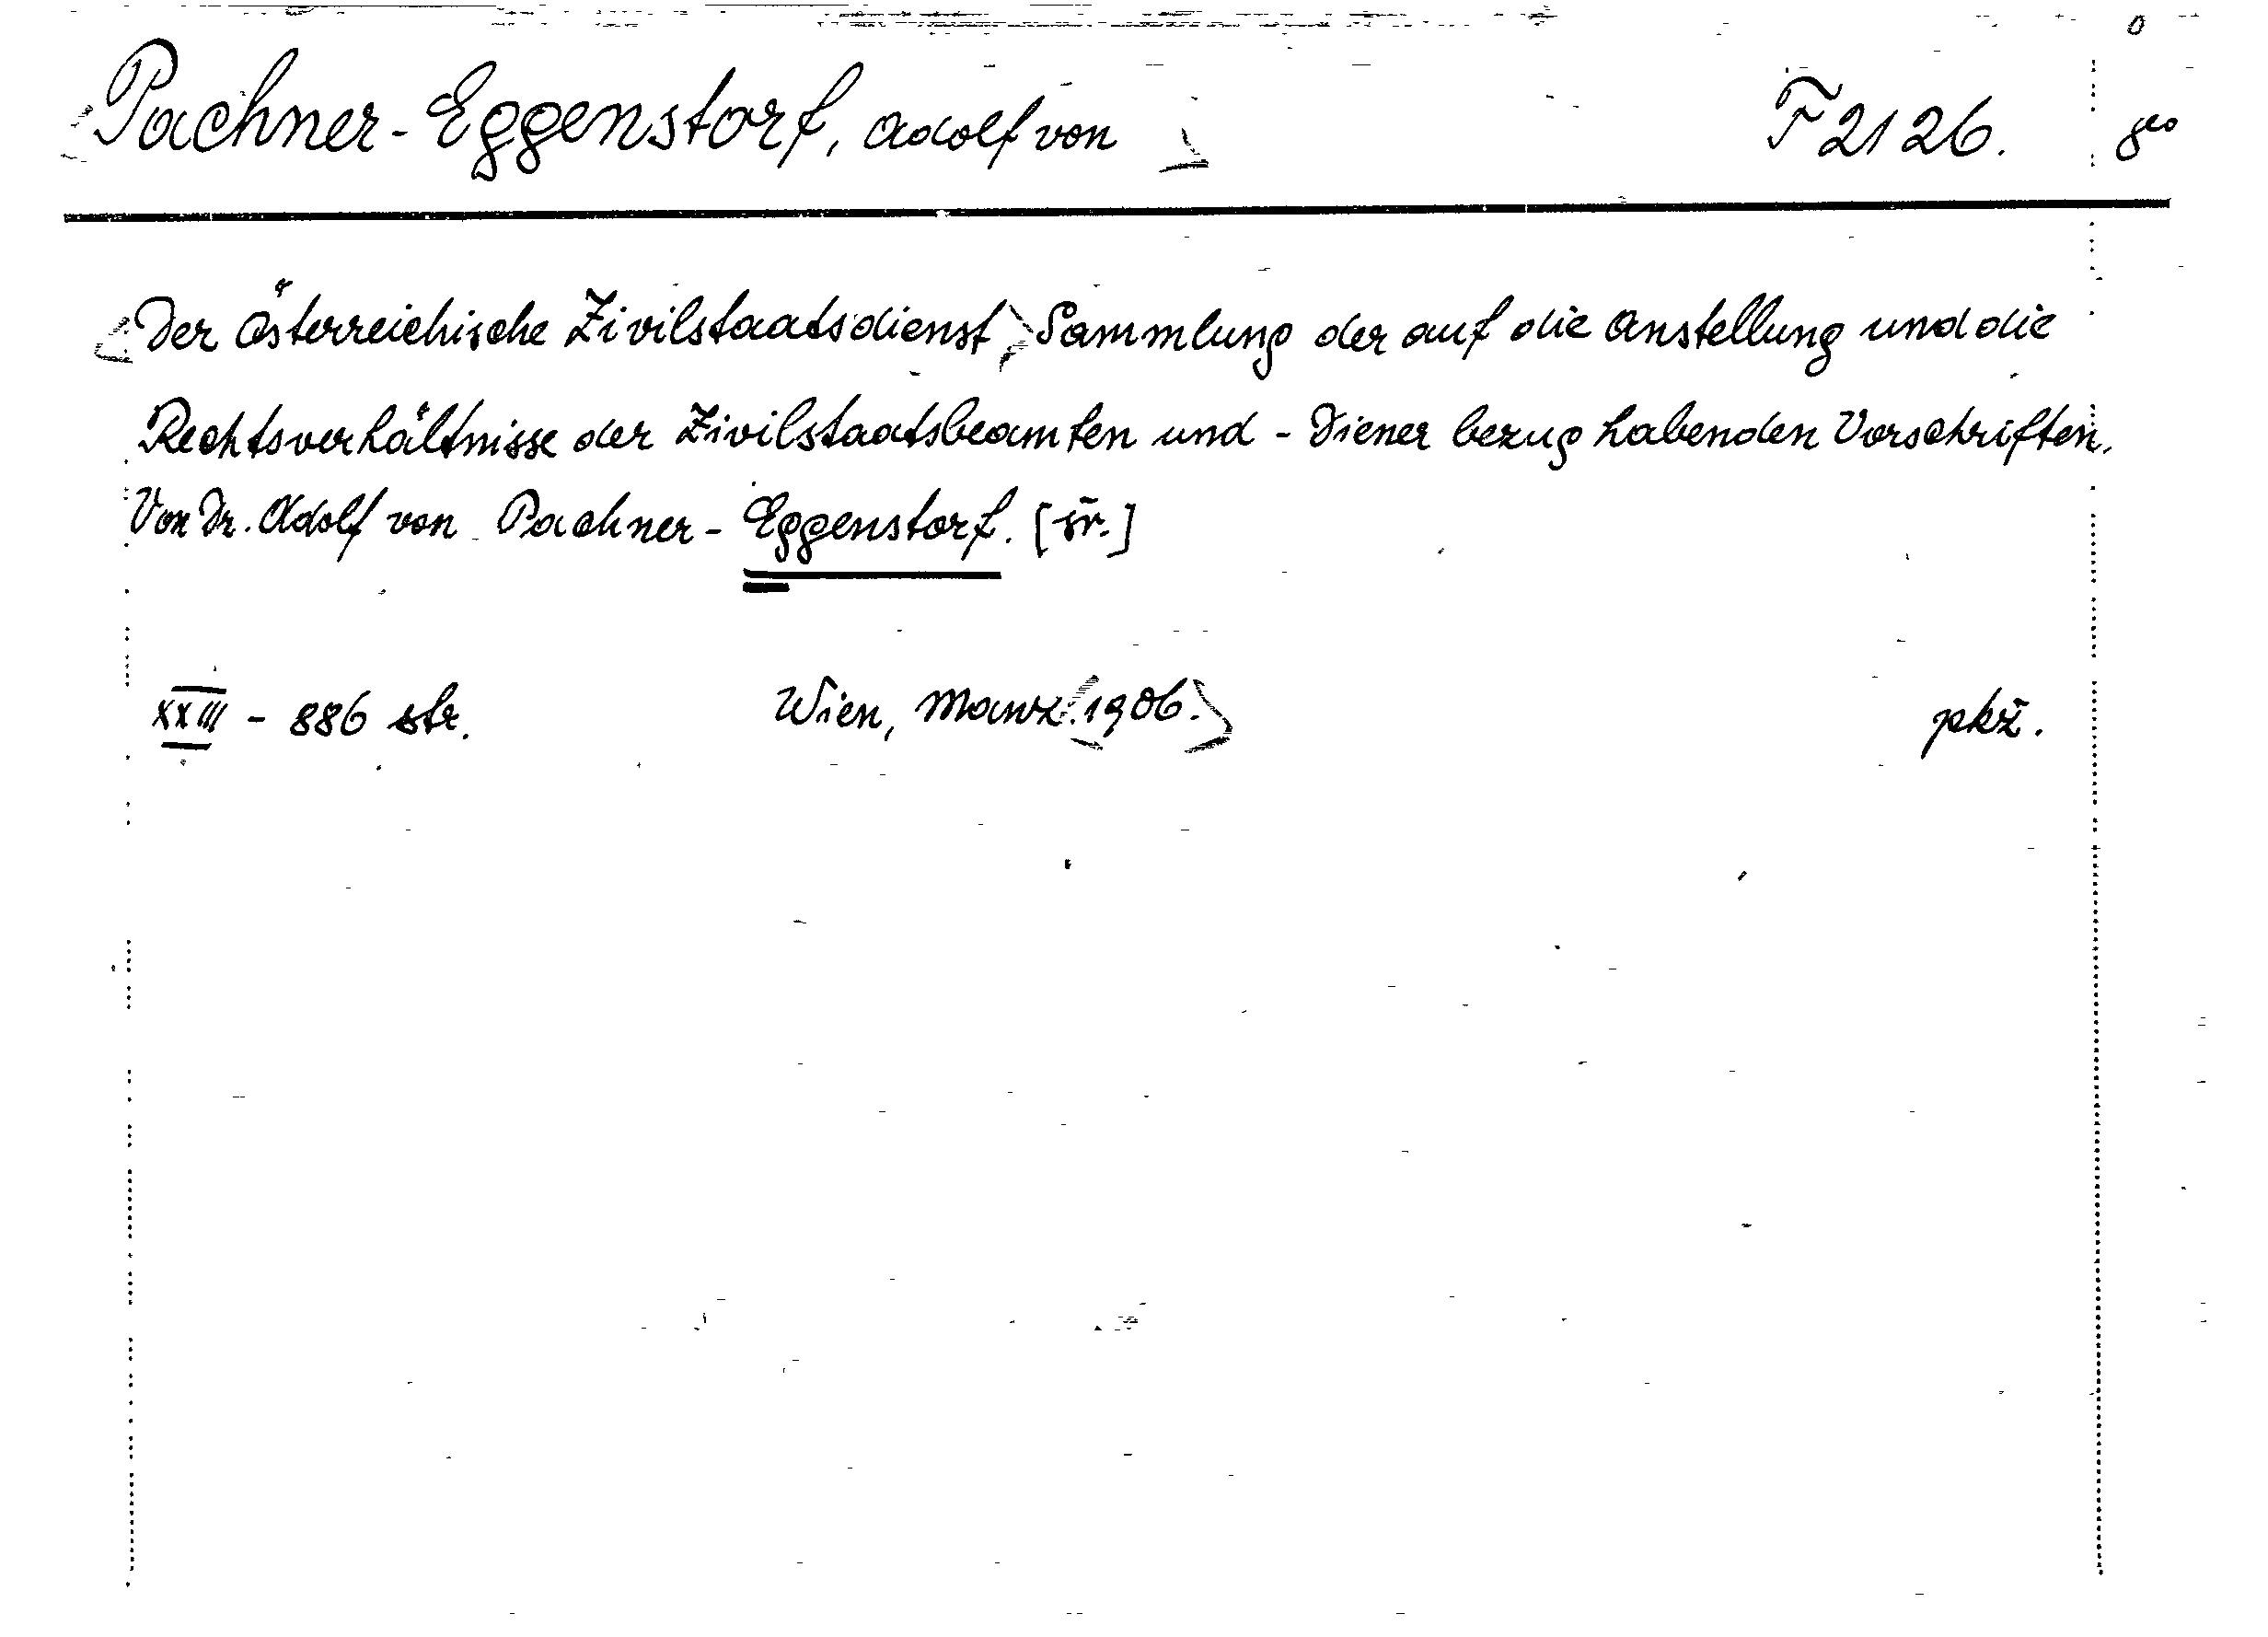 Pachner-Eggenstorf, Adolf von F 2126. 8°
Der österreichische Zivilstaatsdienst Sammlung der auf die Anstellung und die
Rechtsverhältnisse der Zivilstaatsbeamten und - Diener bezug habenden Vorschriften.
Von Dr. Adolf von Pachner-Eggenstorf. [šr.]
XXIII - 886 str. Wien, Manz. 1906. pkž.